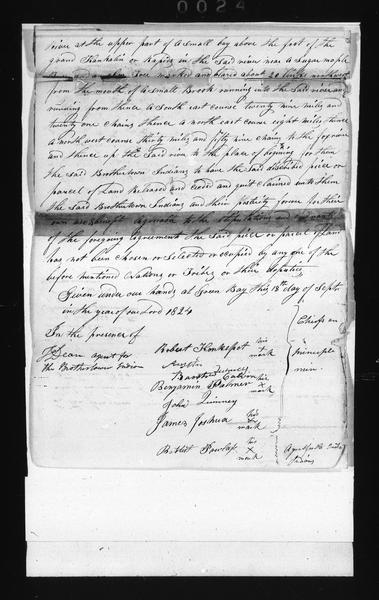 0024
river at the upper part of a small bay above the foot of the
grand Kankalin or Rapids in the said river near a sugar maple
tree marked and blazed about 20 links
from the mouth of a small Brook running into the said river and
running from thence a South east course twenty nine miles and
twenty one chains thence a north east course eight miles thence
a north west course thirty miles and fifty nine chains to the fox river
and thence up the said river to the place of begining for them
the said Brothertown Indians to have the said described piece or
parcel of Land Released and ceeded and quit claimed unto them
the said Brothertown Indians and their posterity forever for their
own use being agreeable to the stipulations and
of the foregoing agreement the said piece or parcel of Land
has not been chosen or selected or occupied by any one of the
before mentioned Nations or Tribes or their deputies
Given under our hands at Green Bay this 18th day of Septr.
in the year of our Lord 1824
In the presence of
T Dean agent for
the Brothertown Indians
Robert Konkepot his X mark
Benjamin Palmer his X mark
John Quinney
James Joshua his X mark
Fowler his X mark
Chiefs and
Principle
men
Indians